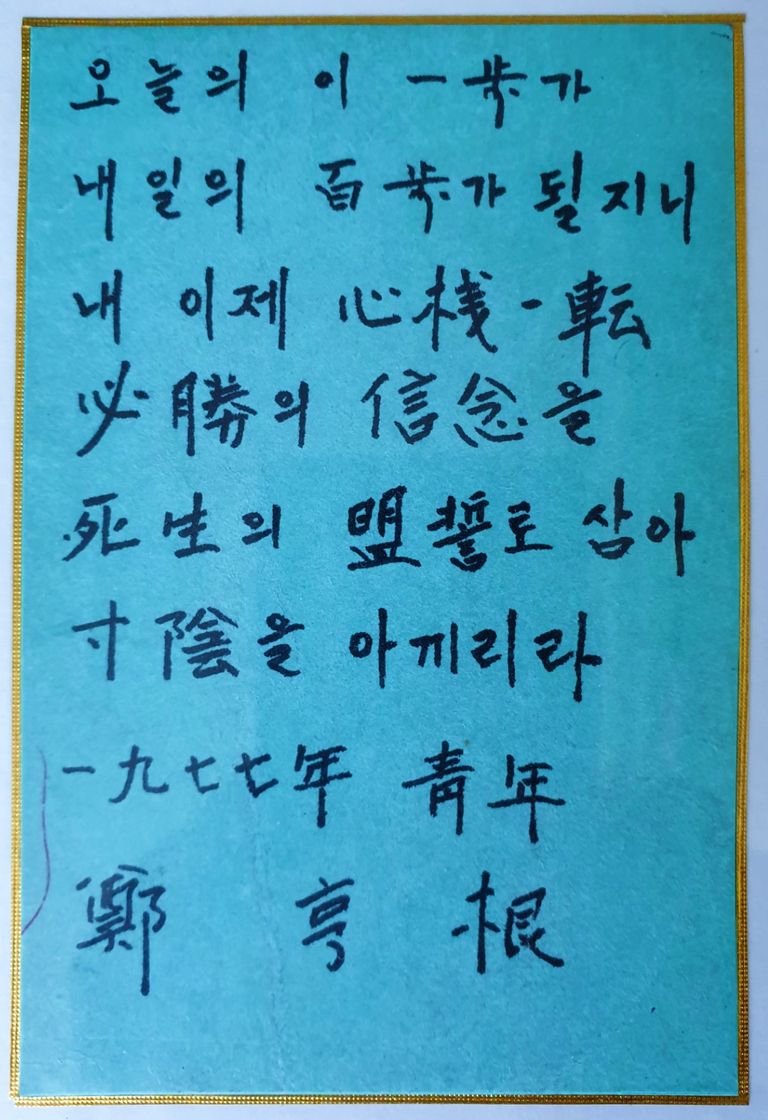 오늘의 이 一歩가
내일의 百歩가 될지니
내 이제 心栈一転
必勝의 信念을
死生의 盟誓로 삼아
寸陰을 아끼리라
一九七七年 靑年
鄭 亨 根